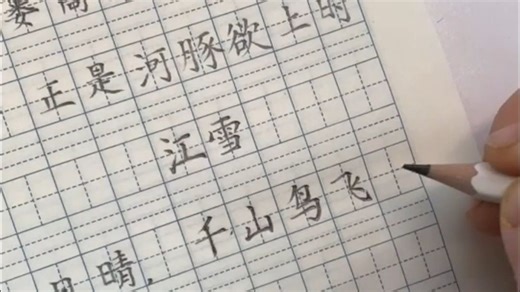 蒌蒿
正是河豚欲上时
江雪
千山鸟飞
晴，